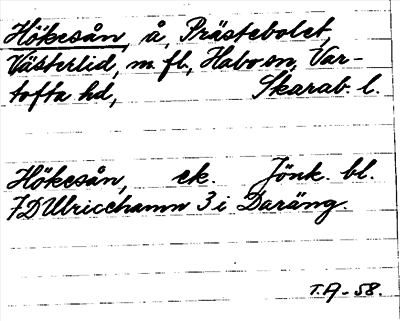 Hökesån, å, Prästebolet,
Västerlid, m. fl., Habo sn, Var-
tofta hd, Skarab. l.
Hökesån, ek. Jönk. bl.
7D Ulricehamn 3 i Daräng.
T.A-58.